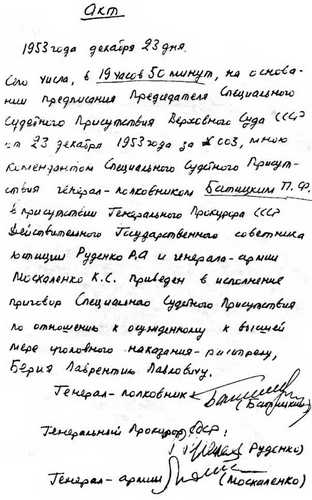 Акт
1953 года декабря 23 дня.
Сего числа, в 19 часов 50 минут, на основа-
нии предписания Председателя Специального
Судебного Присутствия Верховного Суда СССР
от 23 декабря 1953 года за № 003, мною
комендантом Специального Судебного Присут-
ствия генерал-полковником Батицким П.Ф.
в присутствии Генерального Прокурора СССР
Действительного Государственного советника
юстиции Руденко Р.А и генерала-армии
Москаленко К.С. приведен в исполнение
приговор Специального Судебного Присутствия
по отношению к осужденному к высшей
мере уголовного наказания-расстрелу,
Берия Лаврентию Павловичу.
Генерал-полковник
(Батицкий)
Генеральный Прокурор СССР:
(Руденко)
Генерал-армии
(Москаленко)